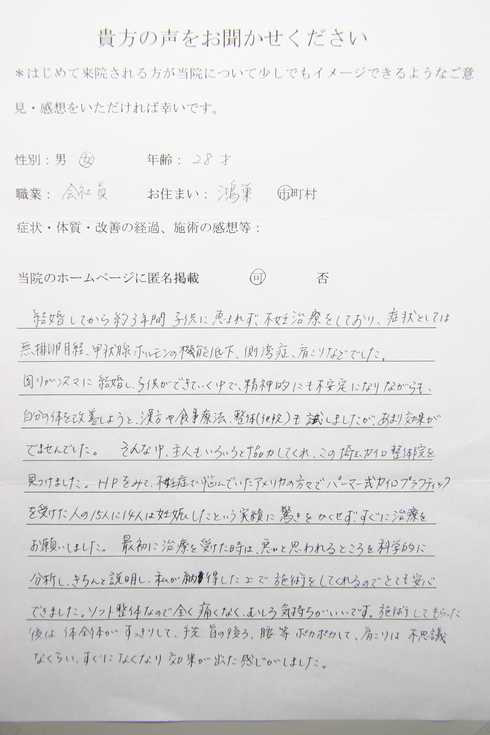 貴方の声をお聞かせください
＊はじめて来院される方が当院について少しでもイメージできるようなご意
見・感想をいただければ幸いです。
性別：男 女 年齢：28才
職業：会社員 お住まい：鴻巣 市町村
症状・体質・改善の経過、施術の感想等：
当院のホームページに匿名掲載 可 否
結婚してから約3年間子供に恵まれず、不妊治療をしており、症状としては
無排卵月経、甲状腺ホルモンの機能低下、側湾症、肩こりなどでした。
周りがスムーズに結婚し、子供ができていく中で、精神的にも不安定になりながらも、
自分の体を改善しようと、漢方や食事療法、整体(他院)も試しましたが、あまり効果が
でませんでした。 そんな中、主人もいろいろと協力してくれ、この埼玉カイロ整体院を
見つけました。HPをみて、不妊症で悩んでいたアメリカの方々でパーマー式カイロプラクティック
を受けた人の15人に14人は妊娠したという実績に驚きをかくせずすぐに治療を
お願いしました。 最初に治療を受けた時は、悪いと思われるところを科学的に
分析し、きちんと説明し、私が納得した上で施術をしてくれるのでとても安心
できました。ソフト整体なので全く痛くなく、むしろ気持ちがいいです。施術してもらった
後は体全体がすっきりして、手先、首の後ろ、腰等ポカポカして、肩こりは不思議
なくらい、すぐになくなり効果が出た感じがしました。